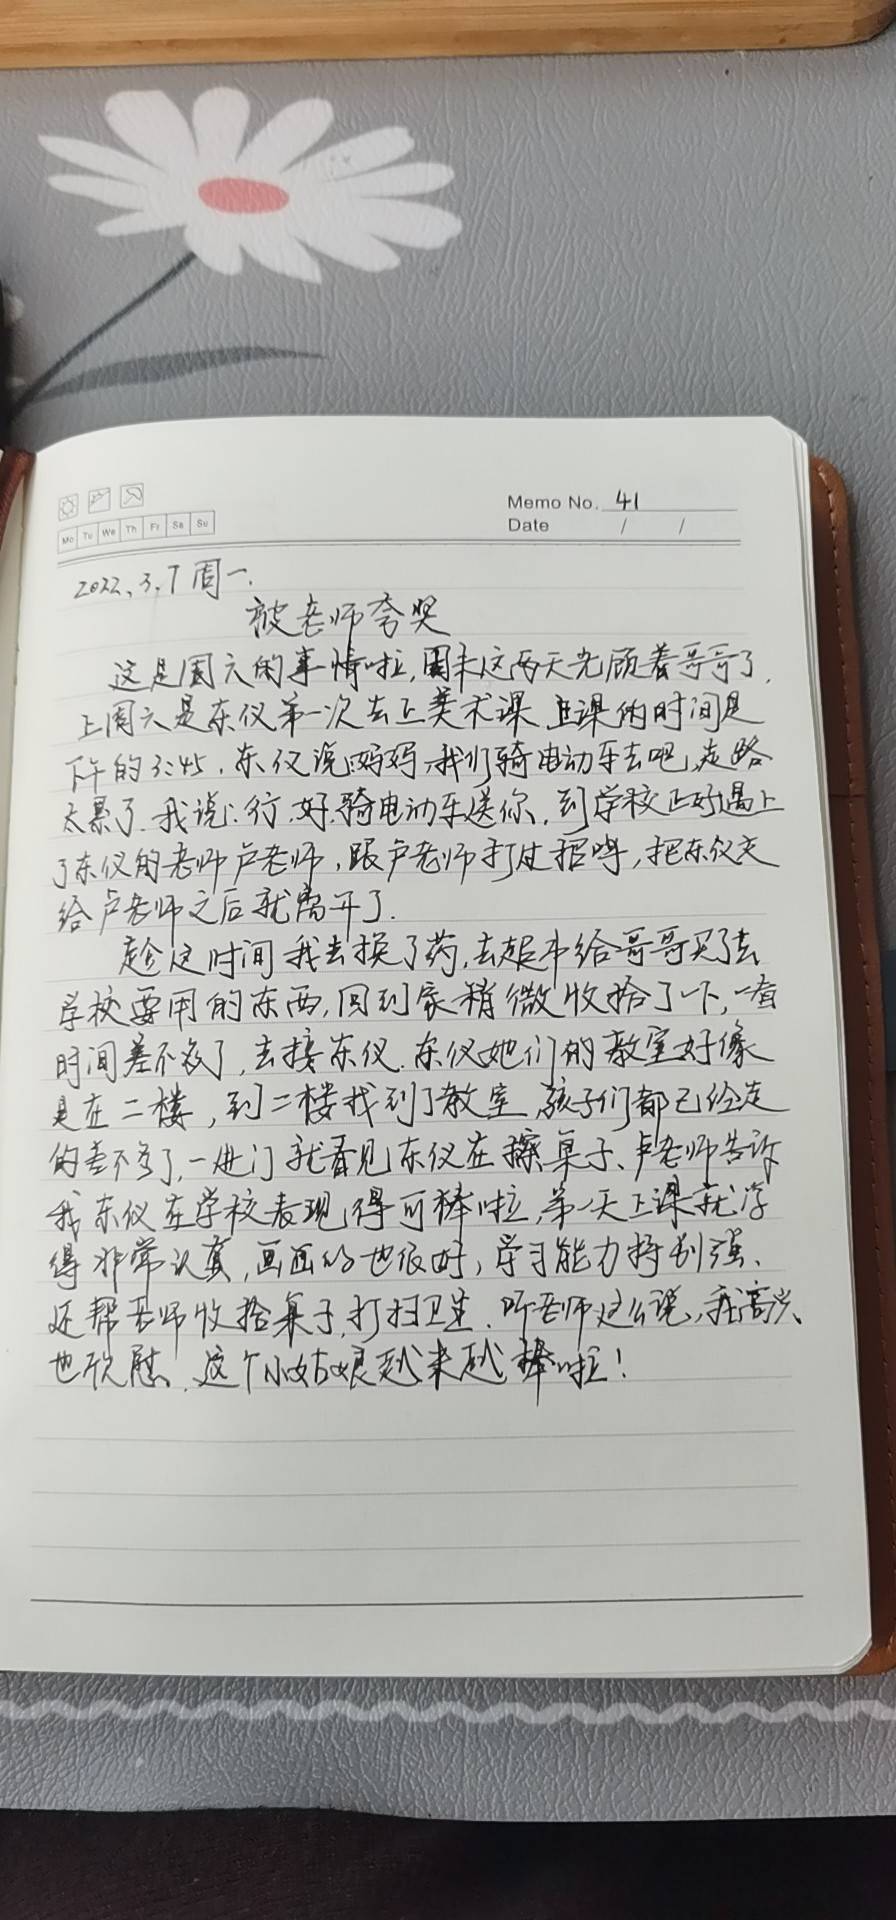 Memo No. 41
Mo Tu We Th Fr Sa Su
Date / /
2022.3.7 周一.
被老师夸奖
这是周六的事情啦,周末这两天光顾着哥哥了,
上周六是东仪第一次去上美术课,上课的时间是
下午的3:45,东仪说:妈妈,我们骑电动车去吧,走路
太累了.我说:行,好,骑电动车送你,到学校正好遇上
了东仪的老师卢老师,跟卢老师打过招呼,把东仪交
给卢老师之后就离开了.
趁这时间我去换了药,去超市给哥哥买了去
学校要用的东西,回到家稍微收拾了一下,一看
时间差不多了,去接东仪.东仪她们的教室好像
是在二楼,到二楼找到了教室,孩子们都已经走
的差不多了,一进门就看见东仪在擦桌子、卢老师告诉
我东仪在学校表现得可棒啦,第一天上课就学
得非常认真,画画的也很好,学习能力特别强、
还帮老师收拾桌子,打扫卫生.听老师这么说,我高兴、
也欣慰、这个小姑娘越来越棒啦!